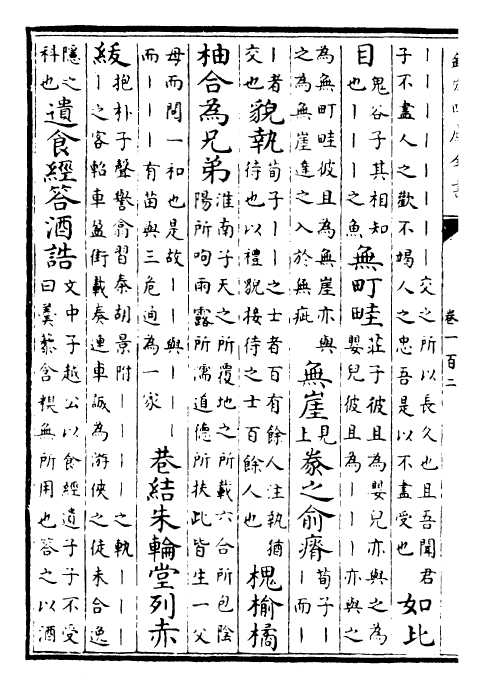 欽定四庫全書
卷一百二
｜｜｜｜｜｜｜｜交之所以長久也且吾聞君
子不盡人之歡不竭人之忠吾是以不盡受也
如比
目
鬼谷子其相知
也｜｜｜之魚
無町畦
莊子彼且為嬰兒亦與之為
嬰兒彼且為｜｜｜亦與之
為無町畦彼且為無崖亦與
之為無崖達之入於無疵
無崖
見
上
豢之俞瘠
荀子｜
｜而｜
｜者
交也
貌執
荀子｜｜之士者百有餘人注執猶
待也以禮貌接待之士百餘人也
槐榆橘
柚合為兄弟
淮南子天之所覆地之所載六合所包陰
陽所呴雨露所濡道德所扶此皆生一父
母而閱一和也是故｜｜與｜｜｜
而｜｜｜有苗與三危通為一家
巷結朱輪堂列赤
紱
抱朴子聲譽翕習秦胡景附｜｜｜｜之執｜｜｜
｜之客軺車盈衢載奏連車誠為游俠之徒未合逸
隱之
科也
遺食經答酒誥
文中子越公以食經遺子子不受
曰羹藜含糗無所用也答之以酒